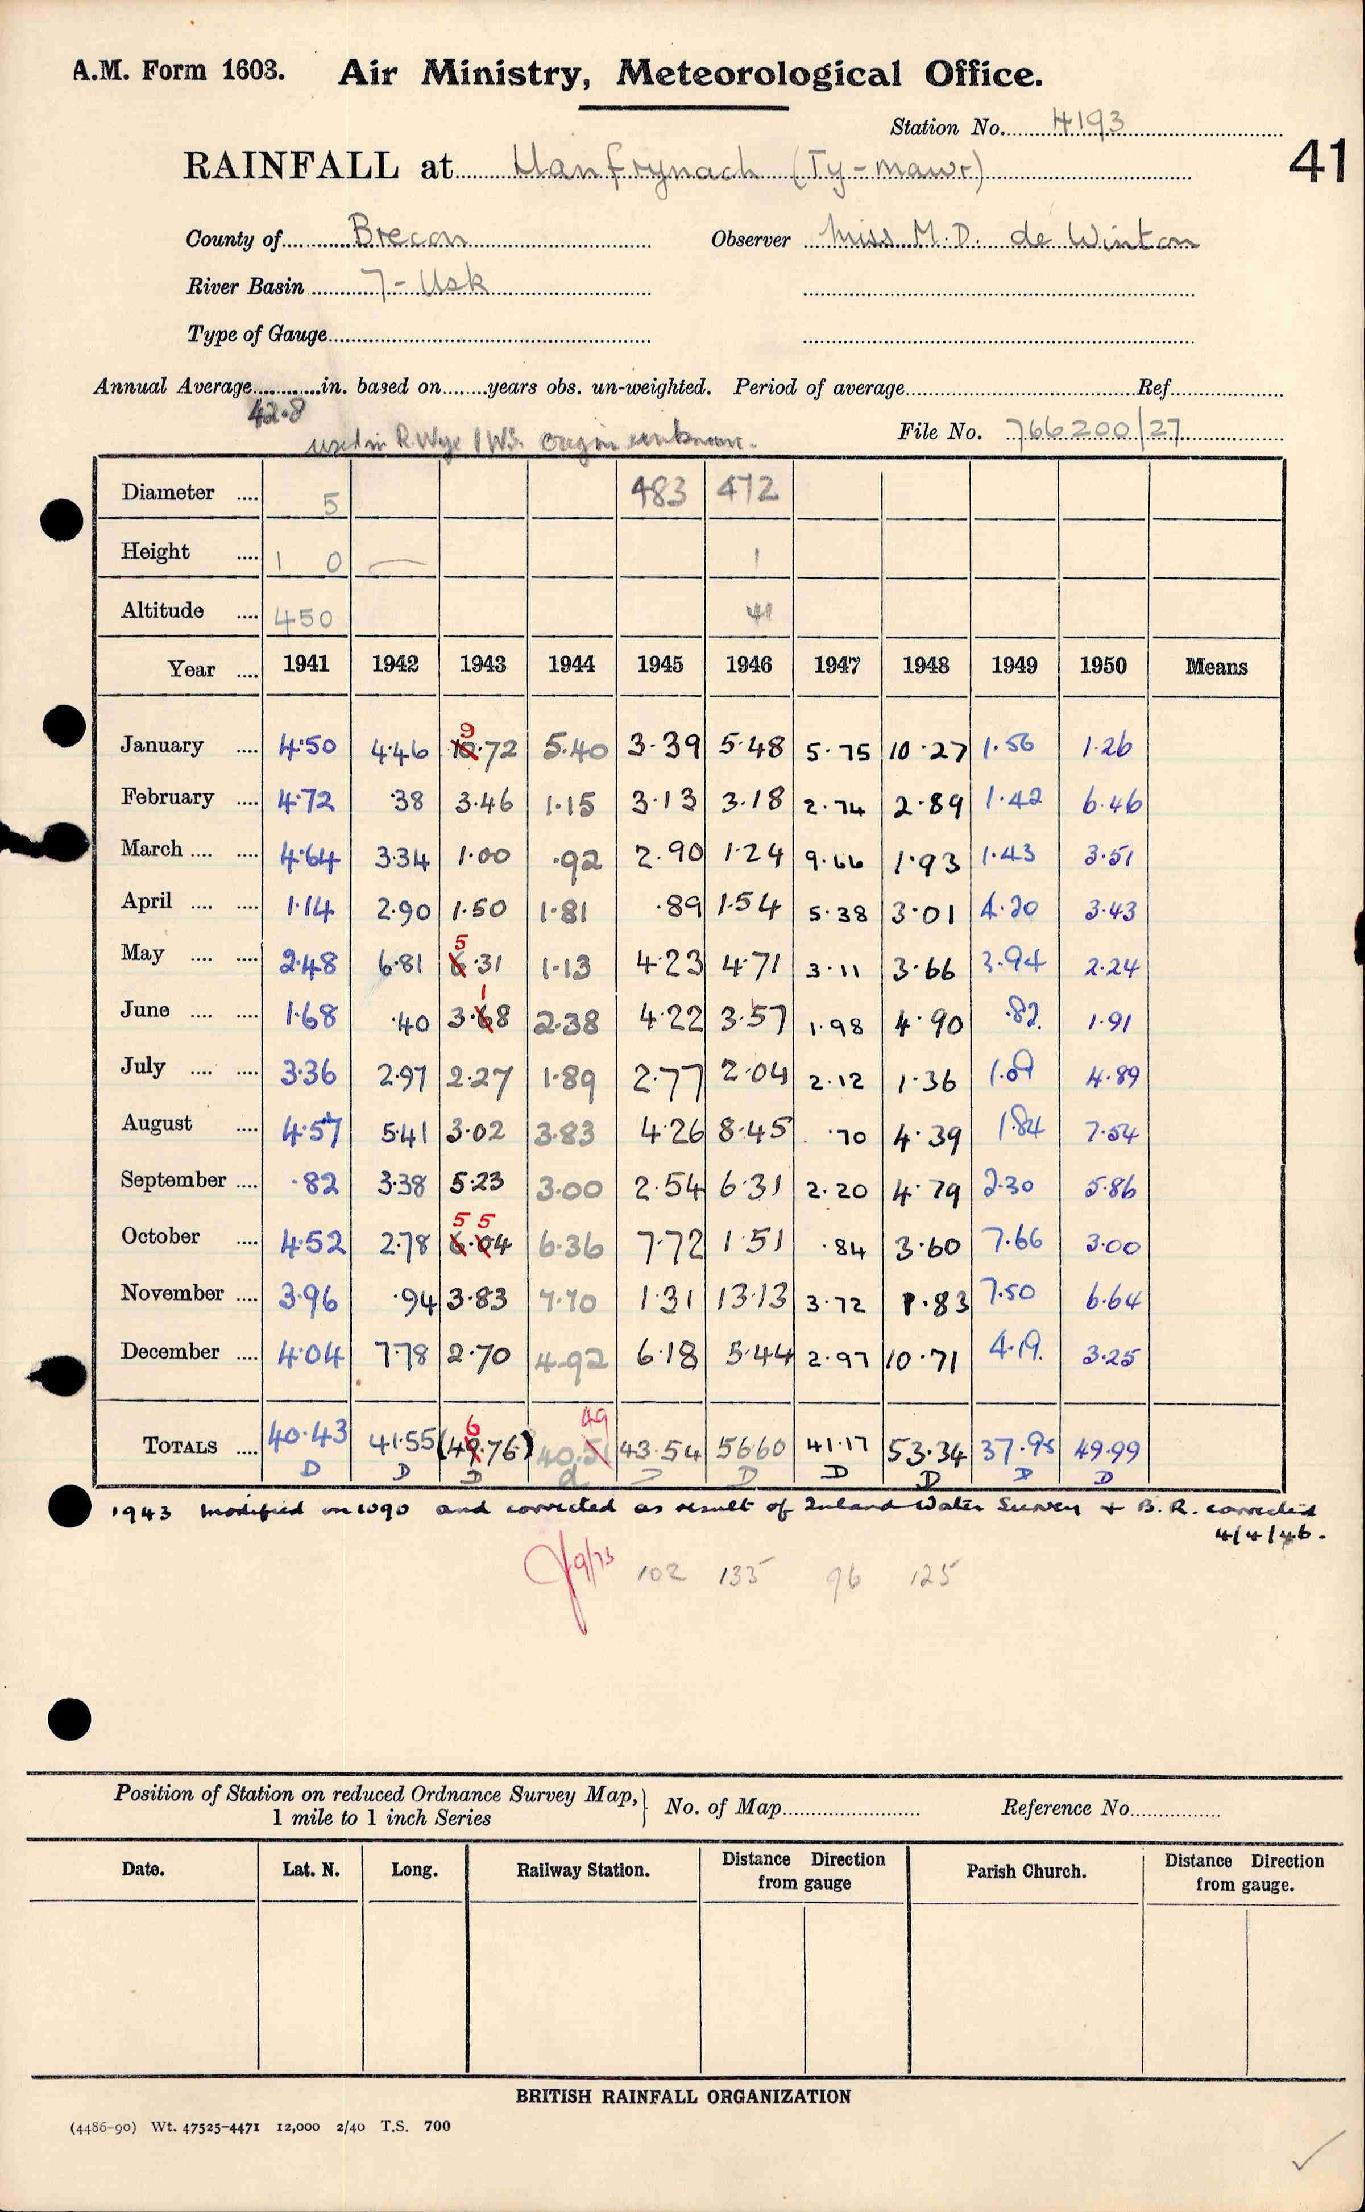 A.M. Form 1603. Air Ministry, Meteorological Office.
Station No. 4193
41
RAINFALL at Llanfrynach (Ty-mawr)
County of Brecon Observer Miss M.D. de Winton
River Basin 7 - Usk
Type of Gauge
Annual Average in. based on years obs. un-weighted. Period of average Ref.
42.8
used in R. Wye IWS. Origin unknown.
File No. 766200/27
Diameter .... 5 483 472
Height .... 1 0 1
Altitude .... 450 41
Year .... 1941 1942 1943 1944 1945 1946 1947 1948 1949 1950 Means
9
January .... 4.50 4.46 10.72 5.40 3.39 5.48 5.75 10.27 1.56 1.26
February .... 4.72 .38 3.46 1.15 3.13 3.18 2.74 2.89 1.42 6.46
March .... .... 4.64 3.34 1.00 .92 2.90 1.24 9.66 1.93 1.43 3.51
April .... .... 1.14 2.90 1.50 1.81 .89 1.54 5.38 3.01 4.20 3.43
5
May .... .... 2.48 6.81 6.31 1.13 4.23 4.71 3.11 3.66 3.94 2.24
1
June .... .... 1.68 .40 3.68 2.38 4.22 3.57 1.98 4.90 .82 1.91
July .... .... 3.36 2.97 2.27 1.89 2.77 2.04 2.12 1.36 1.09 4.89
August .... 4.57 5.41 3.02 3.83 4.26 8.45 .70 4.39 1.84 7.54
September .... .82 3.38 5.23 3.00 2.54 6.31 2.20 4.79 2.30 5.86
5 5
October .... 4.52 2.78 6.04 6.36 7.72 1.51 .84 3.60 7.66 3.00
November .... 3.96 .94 3.83 7.70 1.31 13.13 3.72 1.83 7.50 6.64
December .... 4.04 7.78 2.70 4.92 6.18 5.44 2.97 10.71 4.19. 3.25
6 49
TOTALS .... 40.43 41.55 (49.76) 40.51 43.54 56.60 41.17 53.34 37.95 49.99
D D D d D D D D D D
1943 modified on 1090 and corrected as result of Inland Water Survey + B.R. corrected
4/4/46.
9/73 102 135 96 125
Position of Station on reduced Ordnance Survey Map,
1 mile to 1 inch Series
No. of Map Reference No.
Date. Lat. N. Long. Railway Station. Distance Direction from gauge Parish Church. Distance Direction from gauge.
BRITISH RAINFALL ORGANIZATION
(4486-90) Wt. 47525-4471 12,000 2/40 T.S. 700